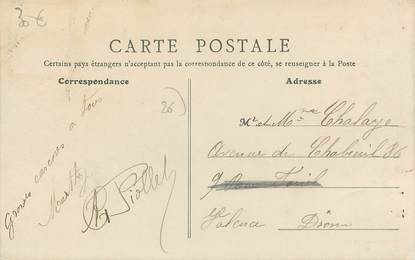 30 €
CARTE POSTALE
Certains pays étrangers n'acceptant pas la correspondance de ce côté, se renseigner à la Poste
Correspondance
Adresse
26
Grosses caresses à tous
Marthe
Piollet
Mr et Mme Chalaye
Avenue de Chabeuil 36
9
Valence Drôme